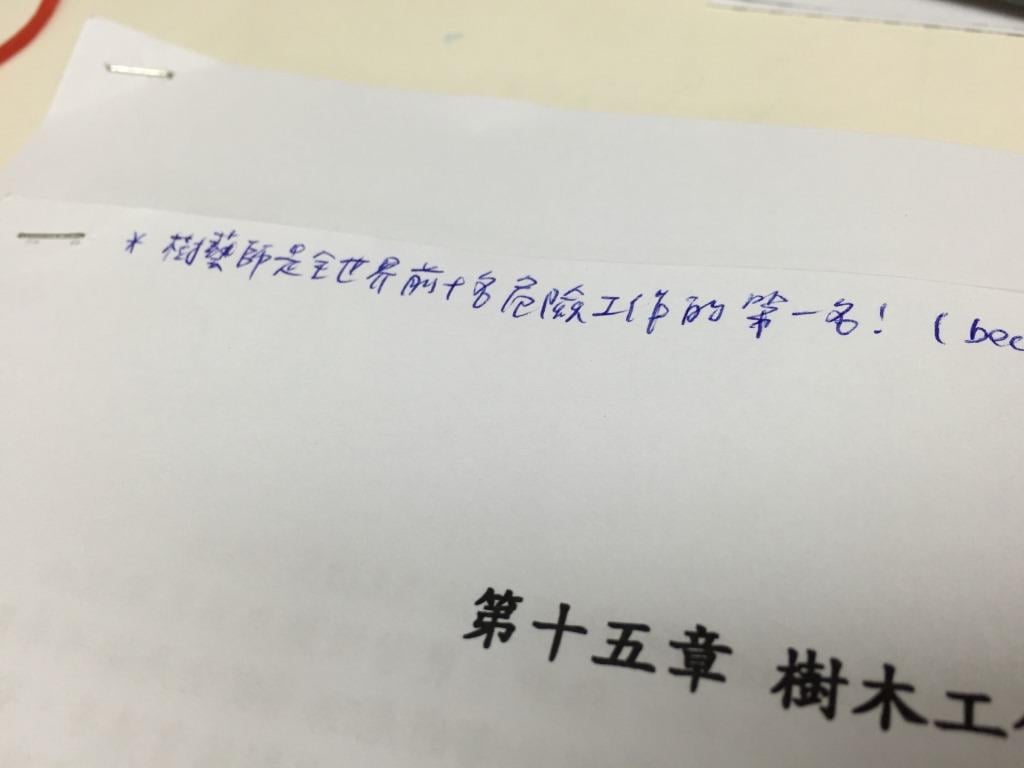 * 樹藝師是全世界前十名危險工作的第一名! (bec
第十五章 樹木工